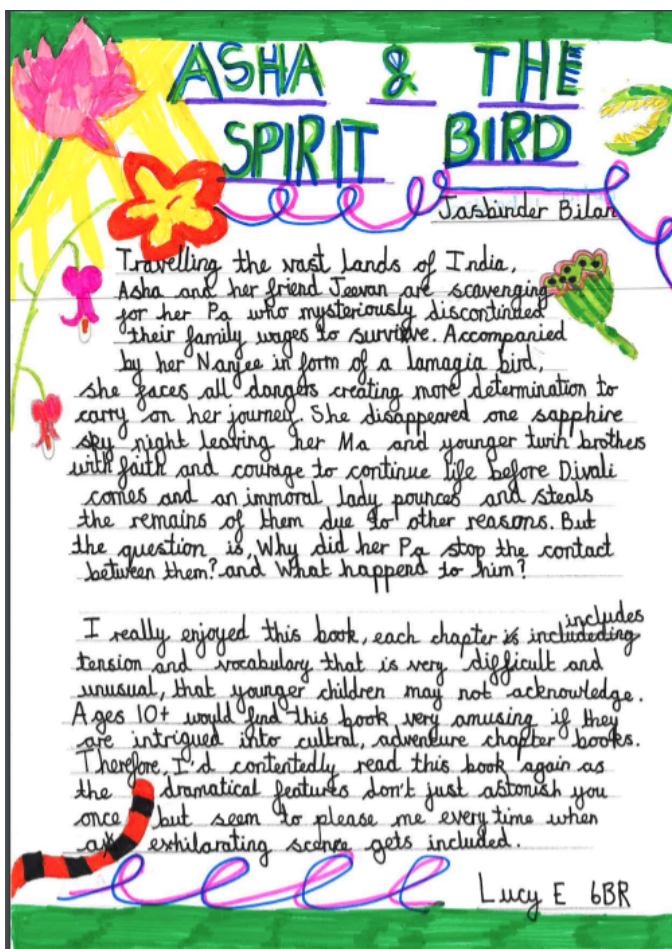 ASHA & THE
SPIRIT BIRD
Jasbinder Bilan
Travelling the vast lands of India,
Asha and her friend Jeevan are scavenging
for her Pa who mysteriously discontinued
their family wages to survive. Accompanied
by her Nanjee in form of a lamagia bird,
she faces all dangers creating more determination to
carry on her journey. She disappeared one sapphire
sky night leaving her Ma and younger twin brothers
with faith and courage to continue life before Divali
comes and an immoral lady pounces and steals
the remains of them due to other reasons. But
the question is, Why did her Pa stop the contact
between them? and What happend to him?
I really enjoyed this book, each chapter is includeding includes
tension and vocabulary that is very difficult and
unusual, that younger children may not acknowledge.
Ages 10+ would find this book very amusing if they
are intrigued into cultral, adventure chapter books.
Therefore, I'd contentedly read this book again as
the dramatical features don't just astonish you
once but seem to please me every time when
a exhilarating scene gets included.
Lucy E 6BR